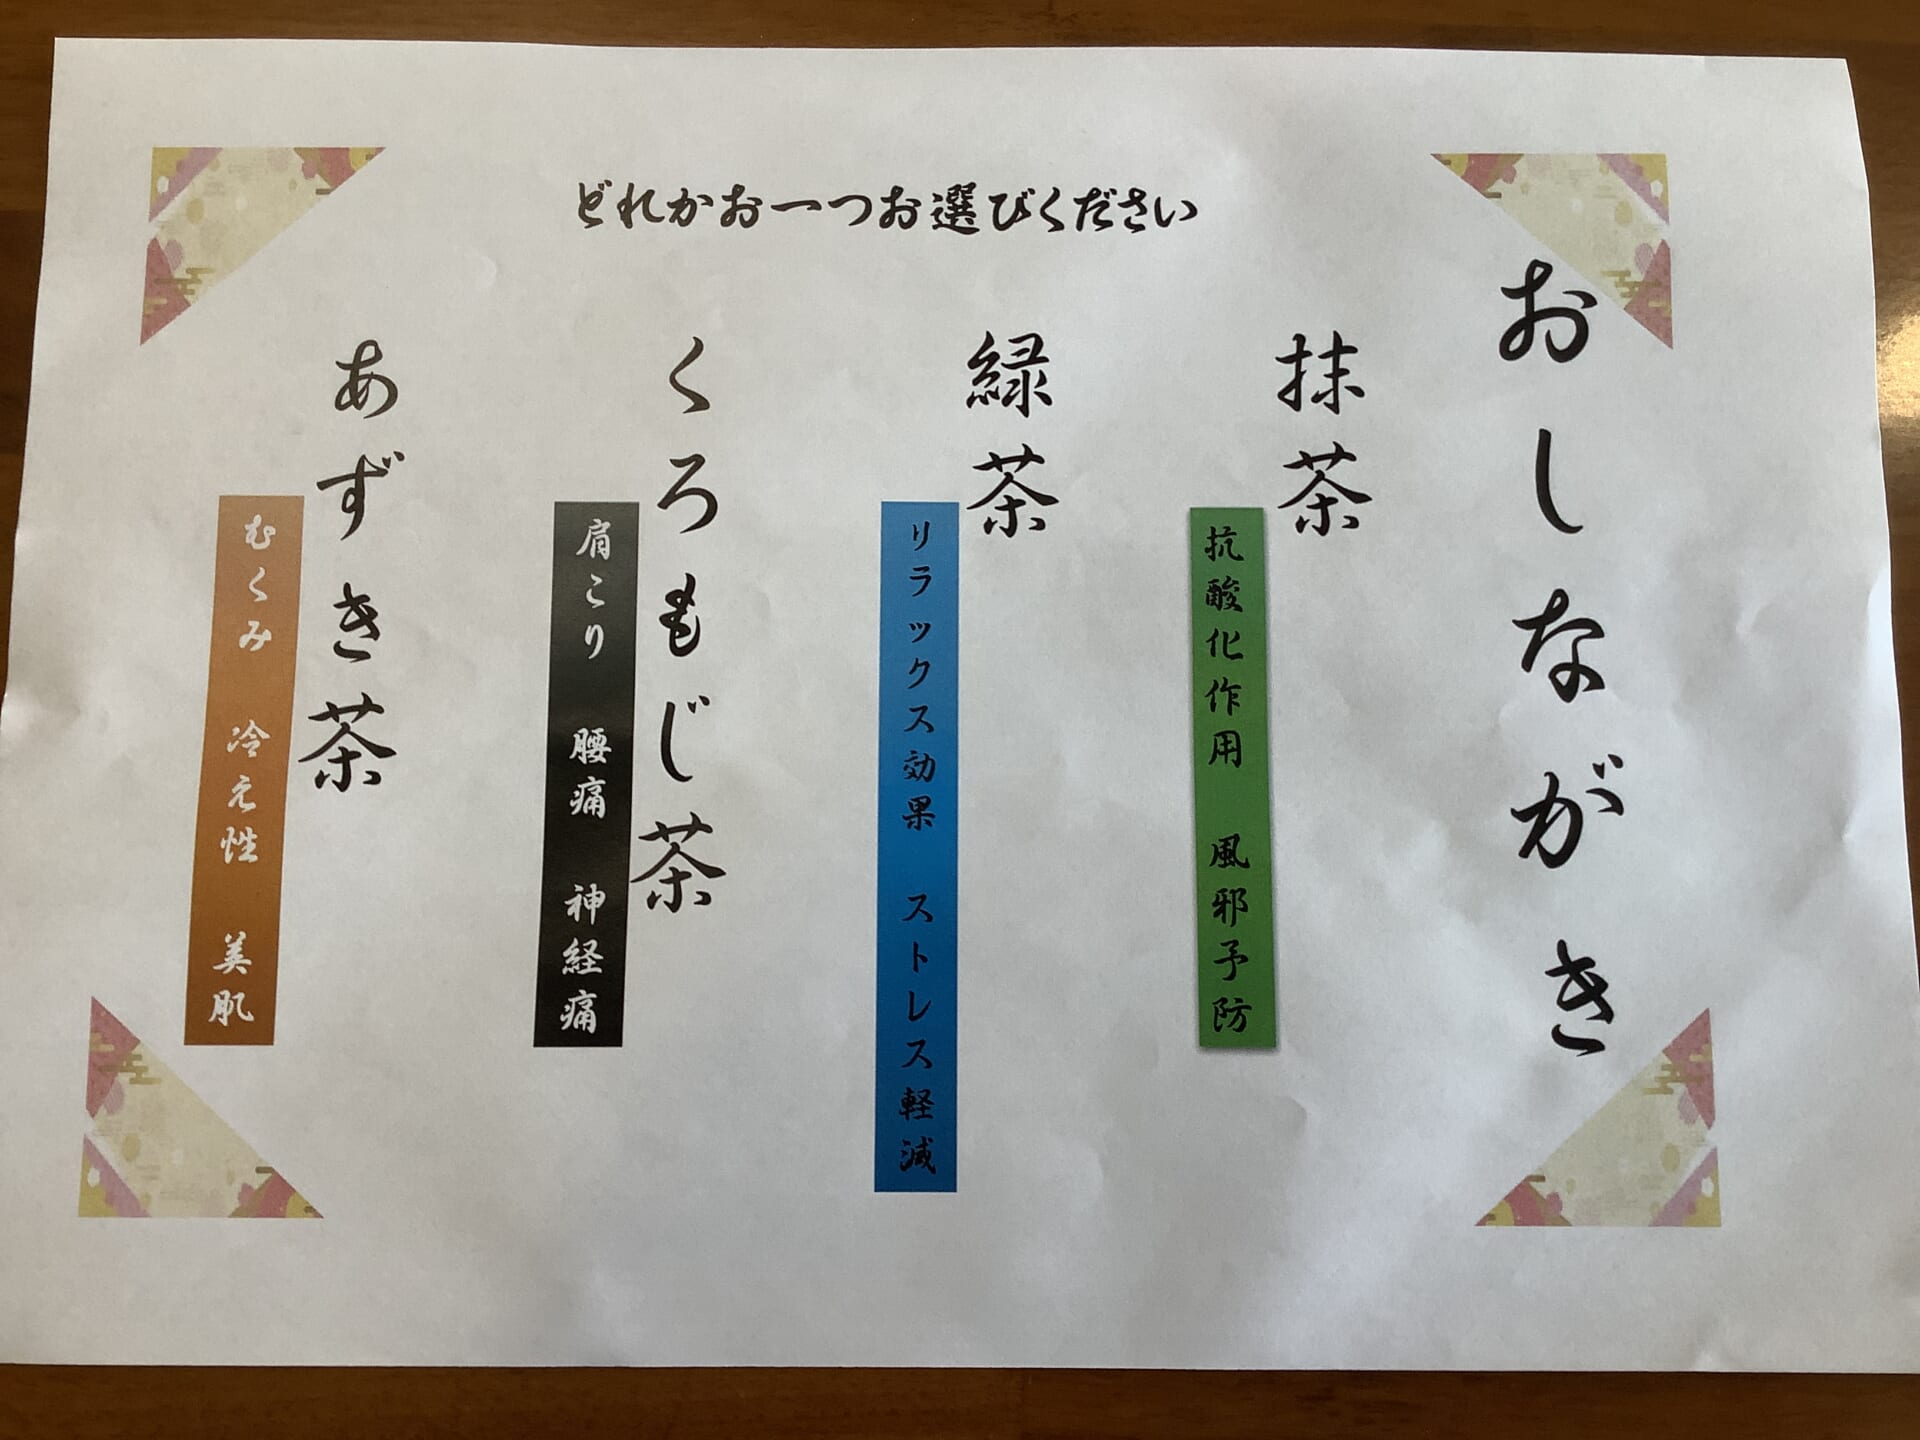 どれかお一つお選びください
おしながき
抹茶
抗酸化作用　風邪予防
緑茶
リラックス効果　ストレス軽減
くろもじ茶
肩こり　腰痛　神経痛
あずき茶
むくみ　冷え性　美肌